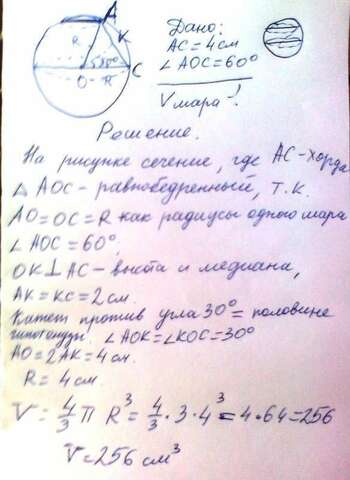 A
R
K
30°
C
O
R
Дано:
AC = 4 см
∠AOC = 60°
V шара - ?
Решение.
На рисунке сечение, где AC - хорда
△ AOC - равнобедренный, т.к.
AO = OC = R как радиусы одного шара
∠ AOC = 60°,
OK ⊥ AC - высота и медиана,
AK = KC = 2 см.
Катет против угла 30° = половине
гипотенузы. ∠AOK = ∠KOC = 30°
AO = 2AK = 4 см.
R = 4 см.
V = 4/3 π R³ = 4/3 · 3 · 4³ = 4 · 64 = 256
V = 256 см³